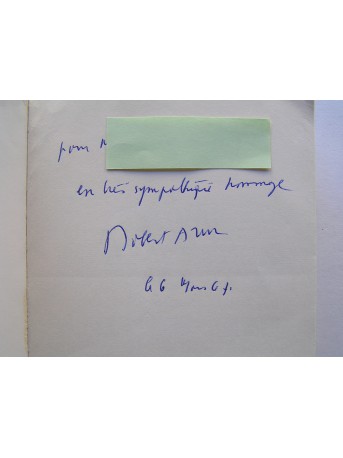 pour M
en très sympathique hommage
Robert Aron
le 6 Mars 61.